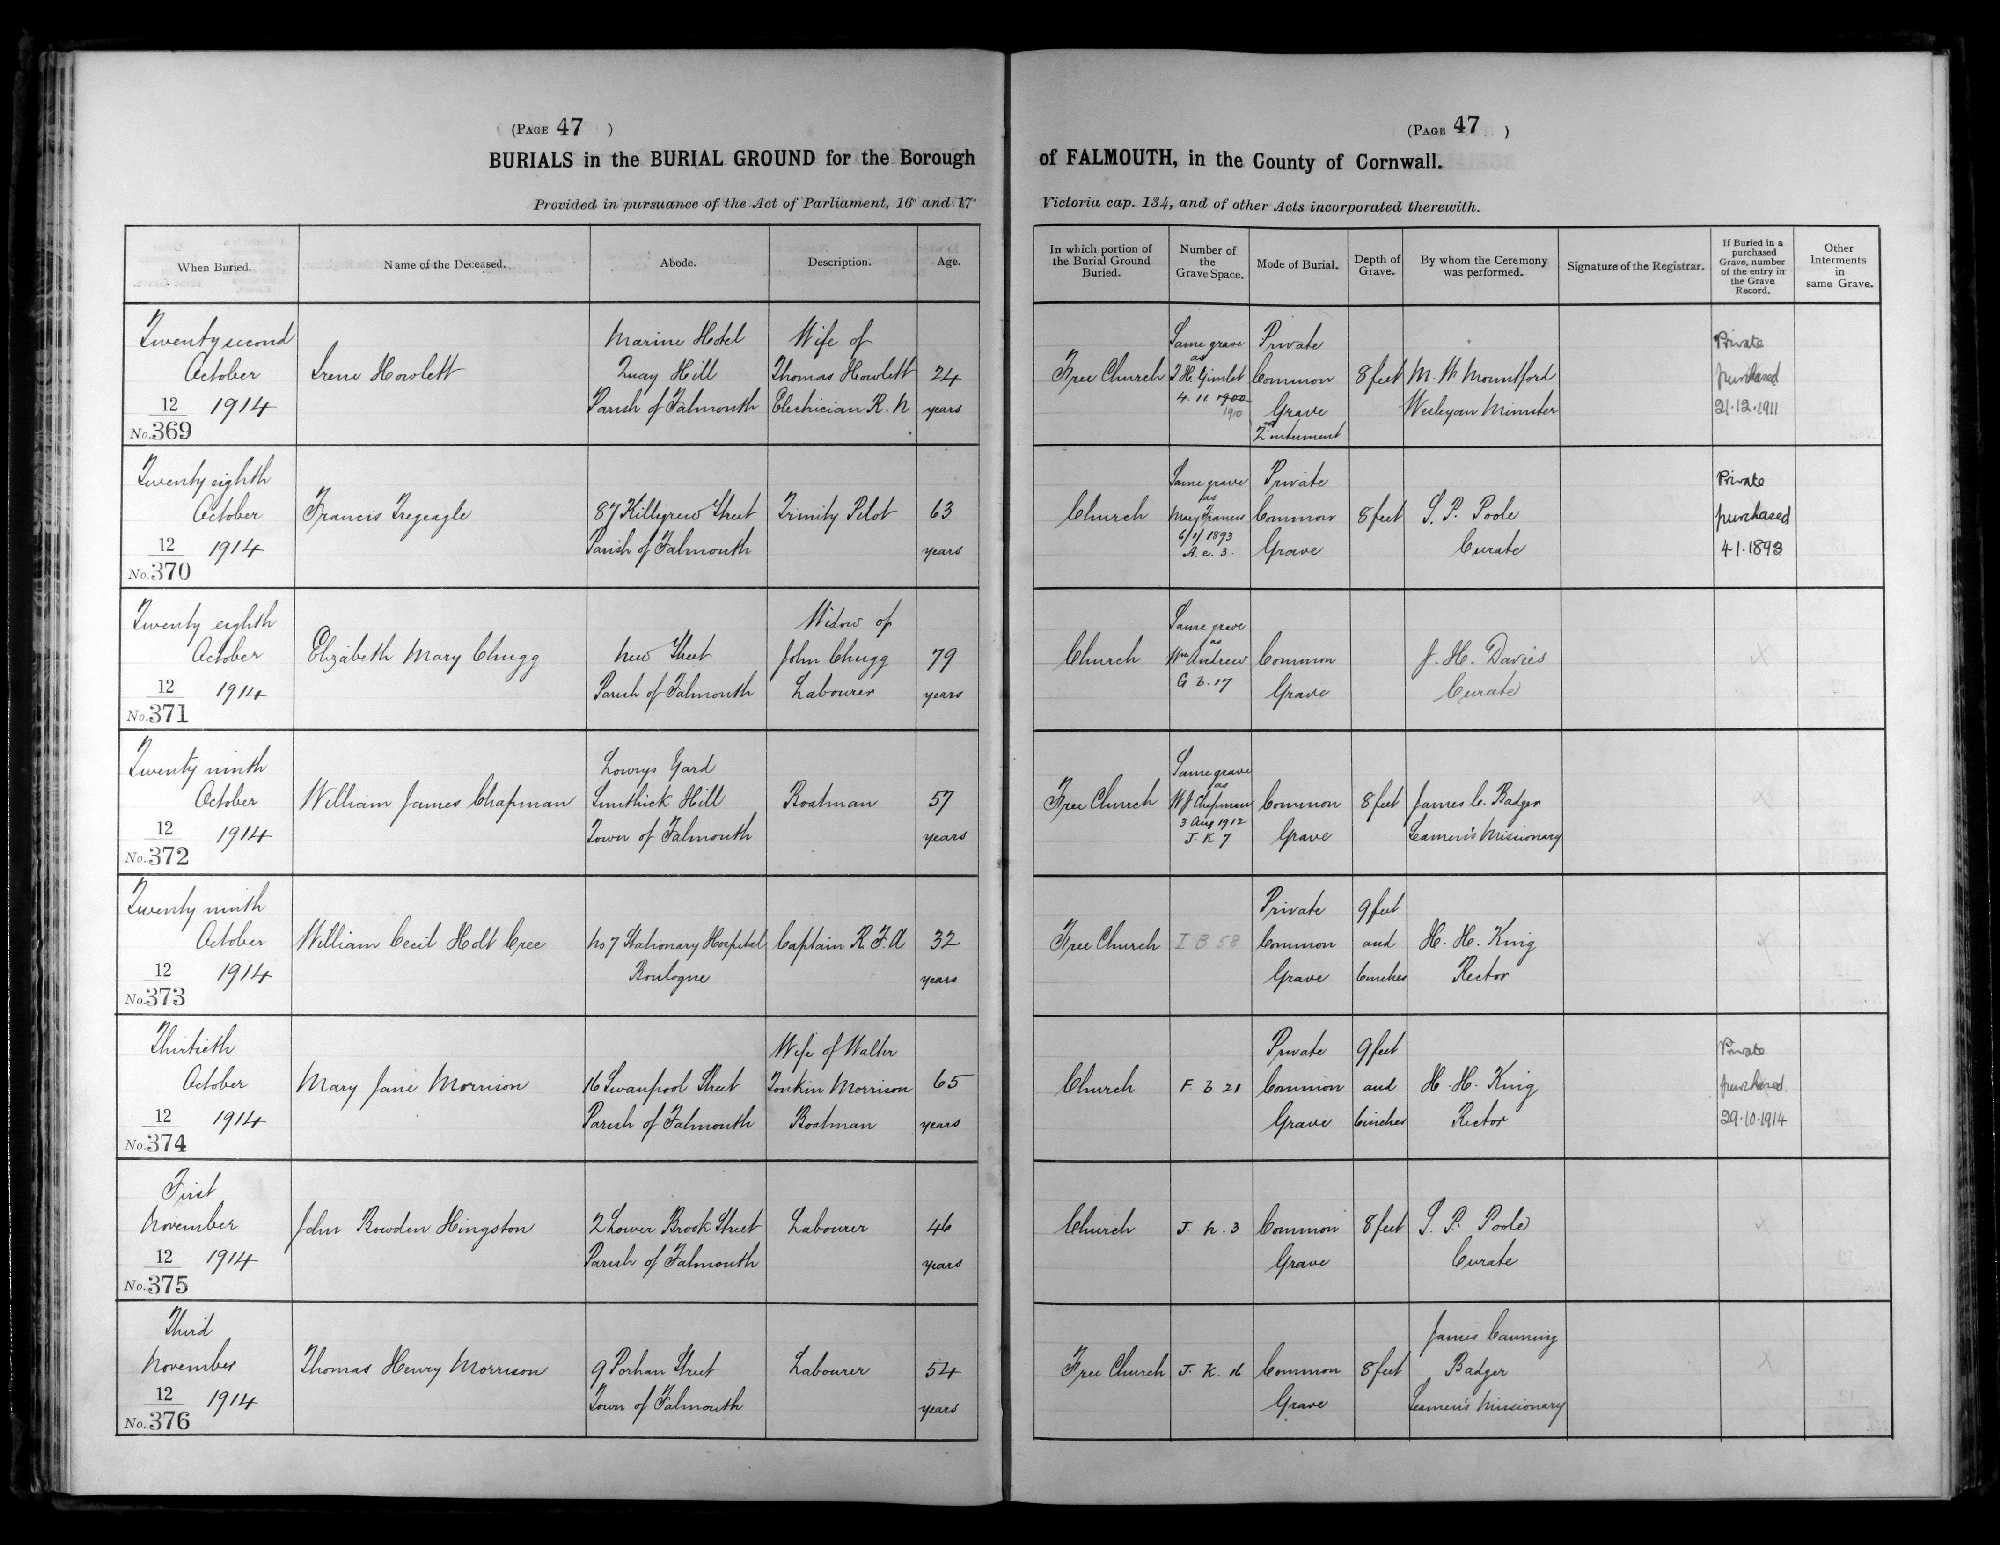 (PAGE 47 )
BURIALS in the BURIAL GROUND for the Borough
Provided in pursuance of the Act of Parliament, 16 and 17
When Buried.
Name of the Deceased.
Abode.
Description.
Age.
Twenty second
October
12 1914
No. 369
Irene Howlett
Marine Hotel
Quay Hill
Parish of Falmouth
Wife of
Thomas Howlett
Electrician R. N
24
years
Twenty eighth
October
12 1914
No. 370
Francis Tregeagle
87 Killigrew Street
Parish of Falmouth
Trinity Pilot
63
years
Twenty eighth
October
12 1914
No. 371
Elizabeth Mary Chugg
New Street
Parish of Falmouth
Widow of
John Chugg
Labourer
79
years
Twenty ninth
October
12 1914
No. 372
William James Chapman
Lowrys Yard
Smithick Hill
Town of Falmouth
Boatman
57
years
Twenty ninth
October
12 1914
No. 373
William Cecil Holt Cree
No 7 Stationary Hospital
Boulogne
Captain R. F. A
32
years
Thirtieth
October
12 1914
No. 374
Mary Jane Morrison
16 Swanpool Street
Parish of Falmouth
Wife of Walter
Tonkin Morrison
Boatman
65
years
First
November
12 1914
No. 375
John Bowden Hingston
2 Lower Brook Street
Parish of Falmouth
Labourer
46
years
Third
November
12 1914
No. 376
Thomas Henry Morrison
9 Porhan Street
Town of Falmouth
Labourer
54
years
(PAGE 47 )
of FALMOUTH, in the County of Cornwall.
Victoria cap. 134, and of other Acts incorporated therewith.
In which portion of
the Burial Ground
Buried.
Number of
the
Grave Space.
Mode of Burial.
Depth of
Grave.
By whom the Ceremony
was performed.
Signature of the Registrar.
If Buried in a
purchased
Grave, number
of the entry in
the Grave
Record.
Other
Interments
in
same Grave.
Free Church
Same grave
as
4 11 1900
1910
Private
Common
Grave
2 interment
8 feet
M. W. Mountford
Wesleyan Minister
Private
purchased
21.12.1911
Church
Same grave
as
Mary Francis
6/1/1893
A. c. 3.
Private
Common
Grave
8 feet
S. P. Poole
Curate
Private
purchased
4.1.1893
Church
Same grave
as
Wm Andrew
G b. 17
Common
Grave
J. H. Davies
Curate
X
Free Church
Same grave
as
W J Chapman
3 Aug 1912
J. K 7
Common
Grave
8 feet
James C. Badger
Seamen's Missionary
X
Free Church
I B 58
Private
Common
Grave
9 feet
and
6 inches
H. H. King
Rector
X
Church
F. b. 21
Private
Common
Grave
9 feet
and
6 inches
H. H. King
Rector
Private
purchased.
29.10.1914
Church
J. K. 3
Common
Grave
8 feet
S. P. Poole
Curate
X
Free Church
J. K. 16
Common
Grave
8 feet
James Canning
Badger
Seamen's Missionary
X